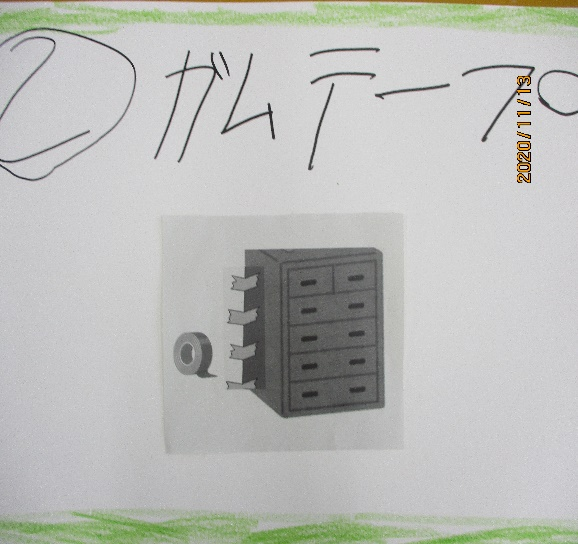 ② ガムテープ
2020/11/13